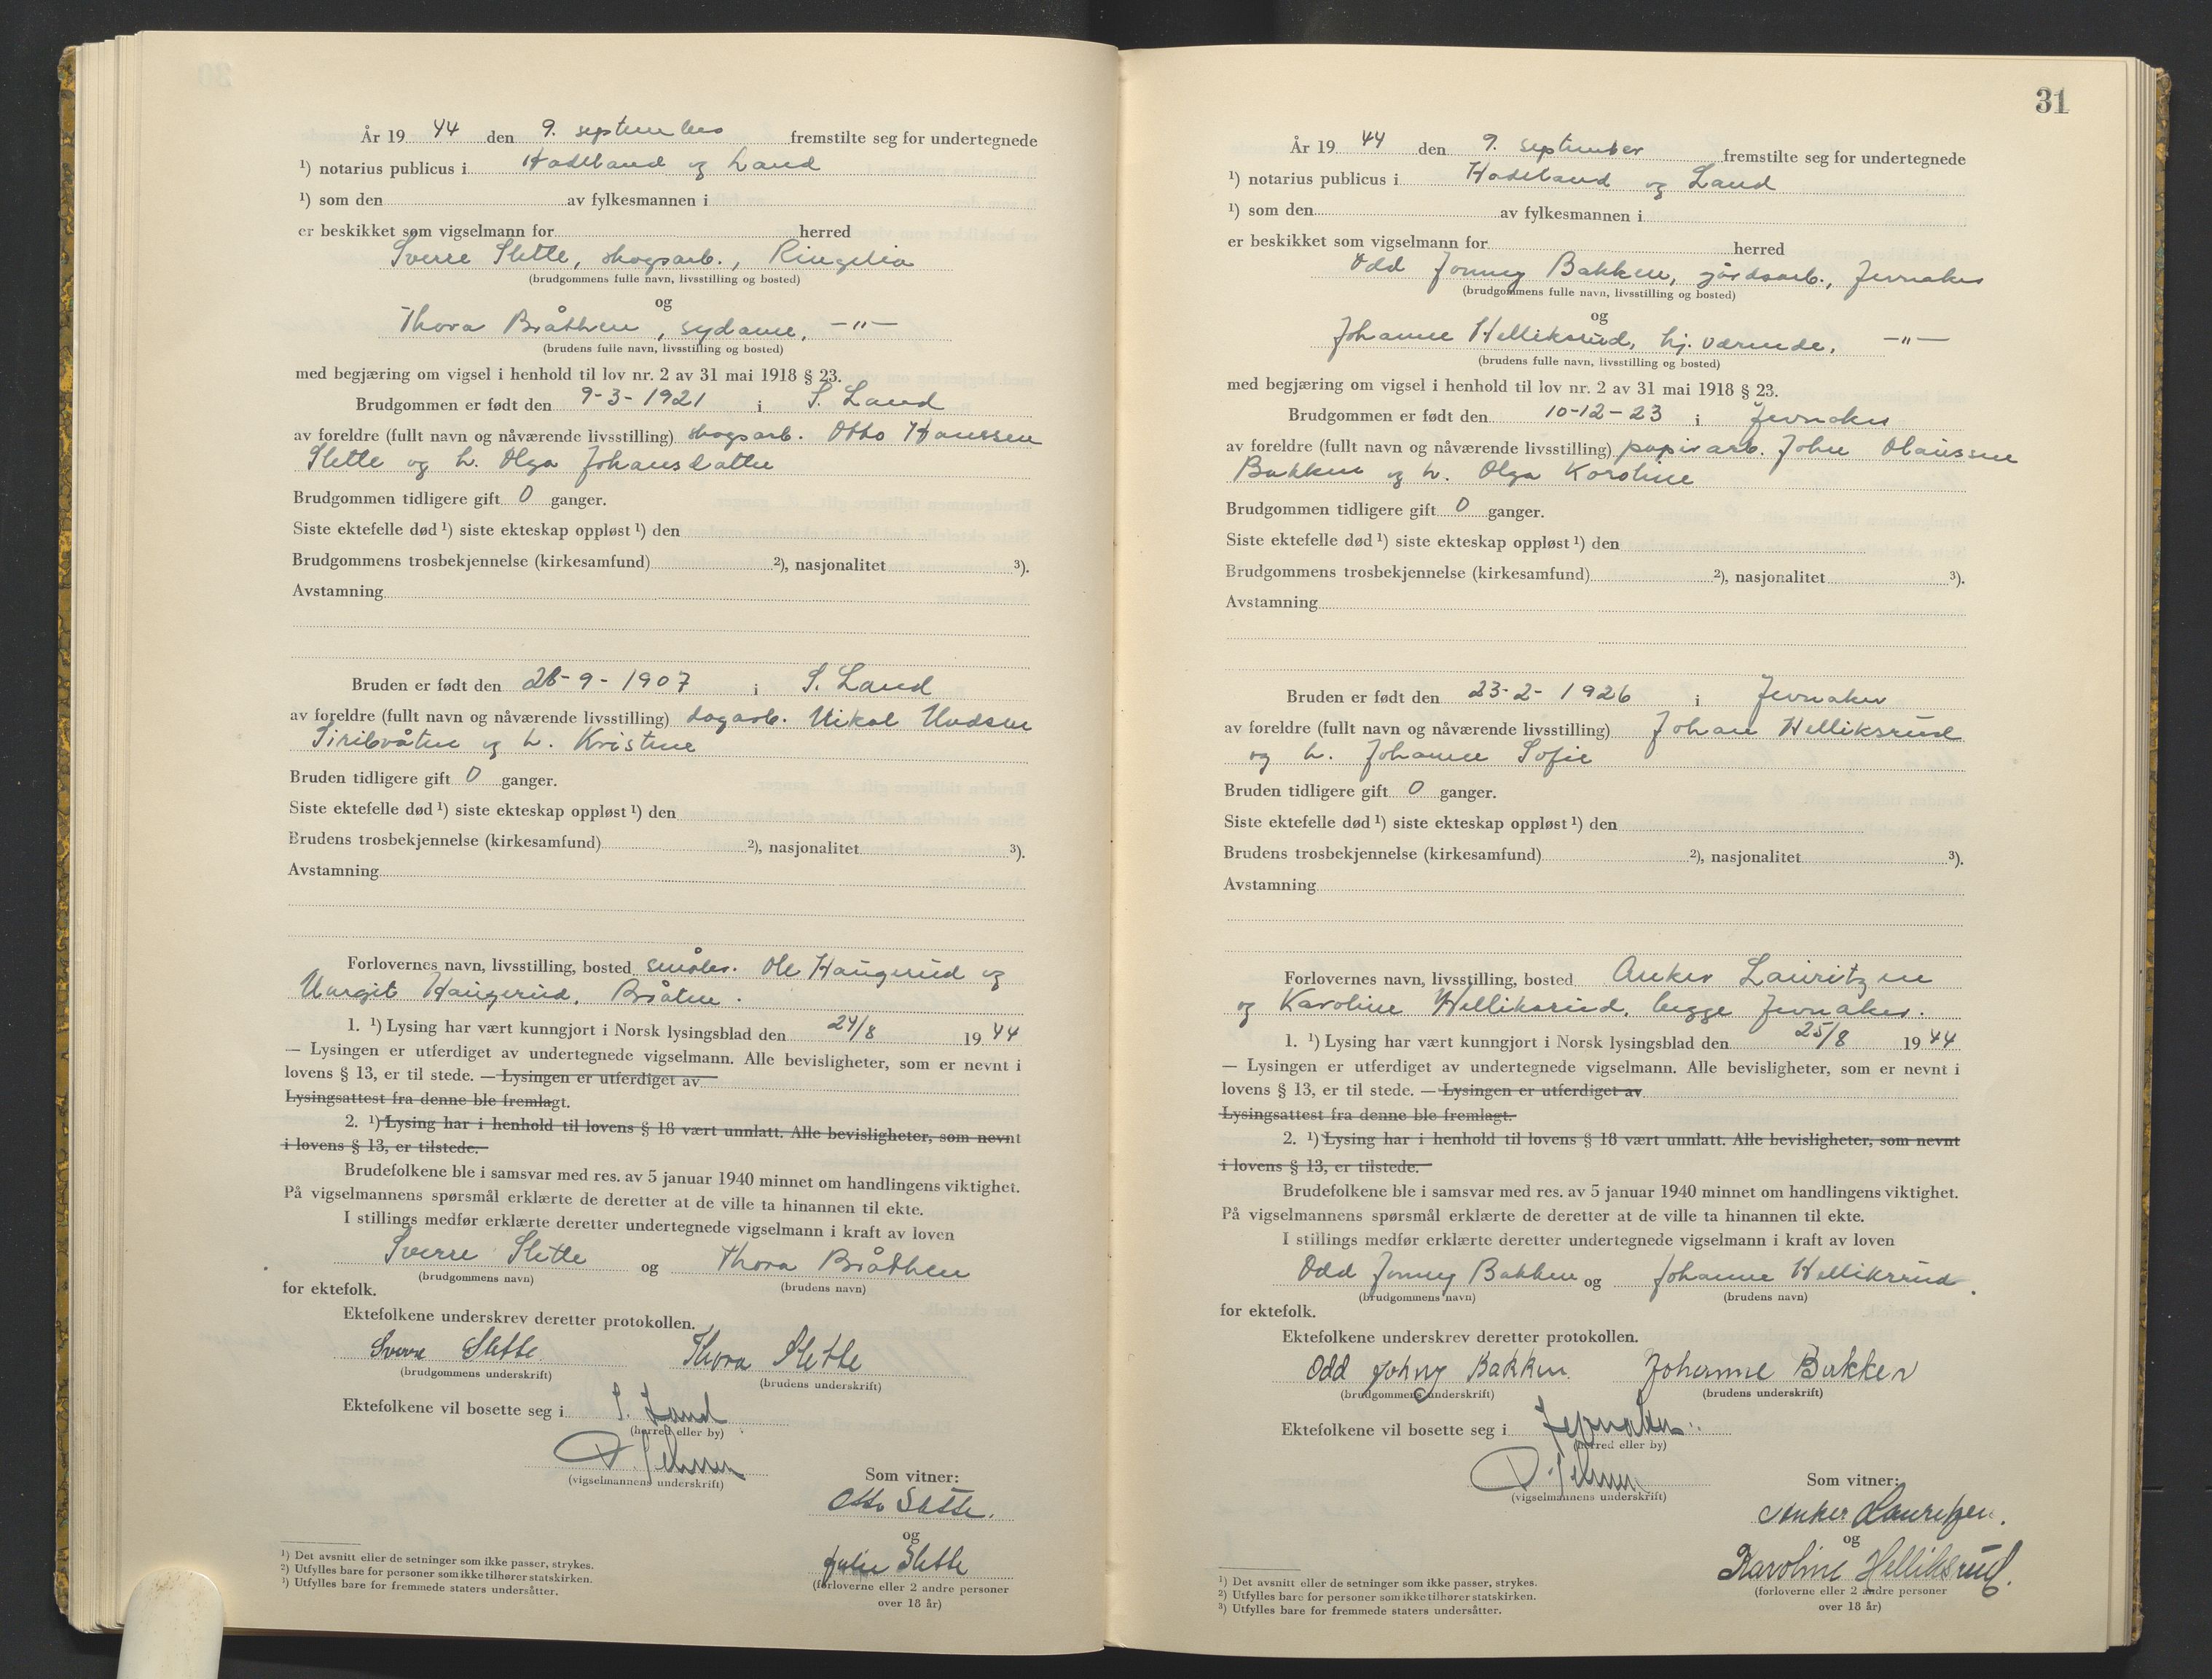 År 19 44 den 9. september fremstilte seg for undertegnede
¹) notarius publicus i Hadeland og Land
¹) som den av fylkesmannen i
er beskikket som vigselmann for herred
Sverre Slette, skogsarb., Ringelia
(brudgommens fulle navn, livsstilling og bosted)
og
Thora Bråthen, sydame, —"—
(brudens fulle navn, livsstilling og bosted)
med begjæring om vigsel i henhold til lov nr. 2 av 31 mai 1918 § 23.
Brudgommen er født den 9-3-1921 i S. Land
av foreldre (fullt navn og nåværende livsstilling) skogsarb. Otto Hanssen
Slette og h. Olga Johansdatter
Brudgommen tidligere gift 0 ganger.
Siste ektefelle død ¹) siste ekteskap oppløst ¹) den
Brudgommens trosbekjennelse (kirkesamfund) ²), nasjonalitet ³).
Avstamning
Bruden er født den 26-9-1907 i S. Land
av foreldre (fullt navn og nåværende livsstilling) dagarb. Nikol
og h. Kristine
Bruden tidligere gift 0 ganger.
Siste ektefelle død ¹) siste ekteskap oppløst ¹) den
Brudens trosbekjennelse (kirkesamfund) ²), nasjonalitet ³).
Avstamning
Forlovernes navn, livsstilling, bosted småbr. Ole Haugerud og
Margit Haugerud, Bråten.
1. ¹) Lysing har vært kunngjort i Norsk lysingsblad den 24/8 19 44
— Lysingen er utferdiget av undertegnede vigselmann. Alle bevisligheter, som er nevnt i
lovens § 13, er til stede. — Lysingen er utferdiget av
Lysingsattest fra denne ble fremlagt.
2. ¹) Lysing har i henhold til lovens § 18 vært unnlatt. Alle bevisligheter, som nevnt
i lovens § 13, er tilstede.
Brudefolkene ble i samsvar med res. av 5 januar 1940 minnet om handlingens viktighet.
På vigselmannens spørsmål erklærte de deretter at de ville ta hinannen til ekte.
I stillings medfør erklærte deretter undertegnede vigselmann i kraft av loven
Sverre Slette og Thora Bråthen
(brudgommens navn) (brudens navn)
for ektefolk.
Ektefolkene underskrev deretter protokollen.
Sverre Slette Thora Slette
(brudgommens underskrift) (brudens underskrift)
Ektefolkene vil bosette seg i S. Land
(herred eller by)
(vigselmannens underskrift)
Som vitner:
Otto Slette.
og
Julie Slette
(forloverne eller 2 andre personer
over 18 år)
¹) Det avsnitt eller de setninger som ikke passer, strykes.
²) Utfylles bare for personer som ikke tilhører statskirken.
³) Utfylles bare for fremmede staters undersåtter.
31
År 19 44 den 9. september fremstilte seg for undertegnede
¹) notarius publicus i Hadeland og Land
¹) som den av fylkesmannen i
er beskikket som vigselmann for herred
Odd Jonny Bakken, gårdsarb., Jevnaker
(brudgommens fulle navn, livsstilling og bosted)
og
Johanne Helliksrud, hj. værende, —"—
(brudens fulle navn, livsstilling og bosted)
med begjæring om vigsel i henhold til lov nr. 2 av 31 mai 1918 § 23.
Brudgommen er født den 10-12-23 i Jevnaker
av foreldre (fullt navn og nåværende livsstilling) papirarb. John Olaussen
Bakken og h. Olga Karoline
Brudgommen tidligere gift 0 ganger.
Siste ektefelle død ¹) siste ekteskap oppløst ¹) den
Brudgommens trosbekjennelse (kirkesamfund) ²), nasjonalitet ³).
Avstamning
Bruden er født den 23-2-1926 i Jevnaker
av foreldre (fullt navn og nåværende livsstilling) Johan Helliksrud
og h. Johanne Sofie
Bruden tidligere gift 0 ganger.
Siste ektefelle død ¹) siste ekteskap oppløst ¹) den
Brudens trosbekjennelse (kirkesamfund) ²), nasjonalitet ³).
Avstamning
Forlovernes navn, livsstilling, bosted Anker Lauritzen
og Karoline Helliksrud, begge Jevnaker.
1. ¹) Lysing har vært kunngjort i Norsk lysingsblad den 25/8 19 44
— Lysingen er utferdiget av undertegnede vigselmann. Alle bevisligheter, som er nevnt i
lovens § 13, er til stede. — Lysingen er utferdiget av
Lysingsattest fra denne ble fremlagt.
2. ¹) Lysing har i henhold til lovens § 18 vært unnlatt. Alle bevisligheter, som nevnt
i lovens § 13, er tilstede.
Brudefolkene ble i samsvar med res. av 5 januar 1940 minnet om handlingens viktighet.
På vigselmannens spørsmål erklærte de deretter at de ville ta hinannen til ekte.
I stillings medfør erklærte deretter undertegnede vigselmann i kraft av loven
Odd Jonny Bakken og Johanne Helliksrud.
(brudgommens navn) (brudens navn)
for ektefolk.
Ektefolkene underskrev deretter protokollen.
Odd Johny Bakken. Johanne Bakken
(brudgommens underskrift) (brudens underskrift)
Ektefolkene vil bosette seg i Jevnaker.
(herred eller by)
(vigselmannens underskrift)
Som vitner:
Anker Lauritzen.
og
Karoline Helliksrud.
(forloverne eller 2 andre personer
over 18 år)
¹) Det avsnitt eller de setninger som ikke passer, strykes.
²) Utfylles bare for personer som ikke tilhører statskirken.
³) Utfylles bare for fremmede staters undersåtter.